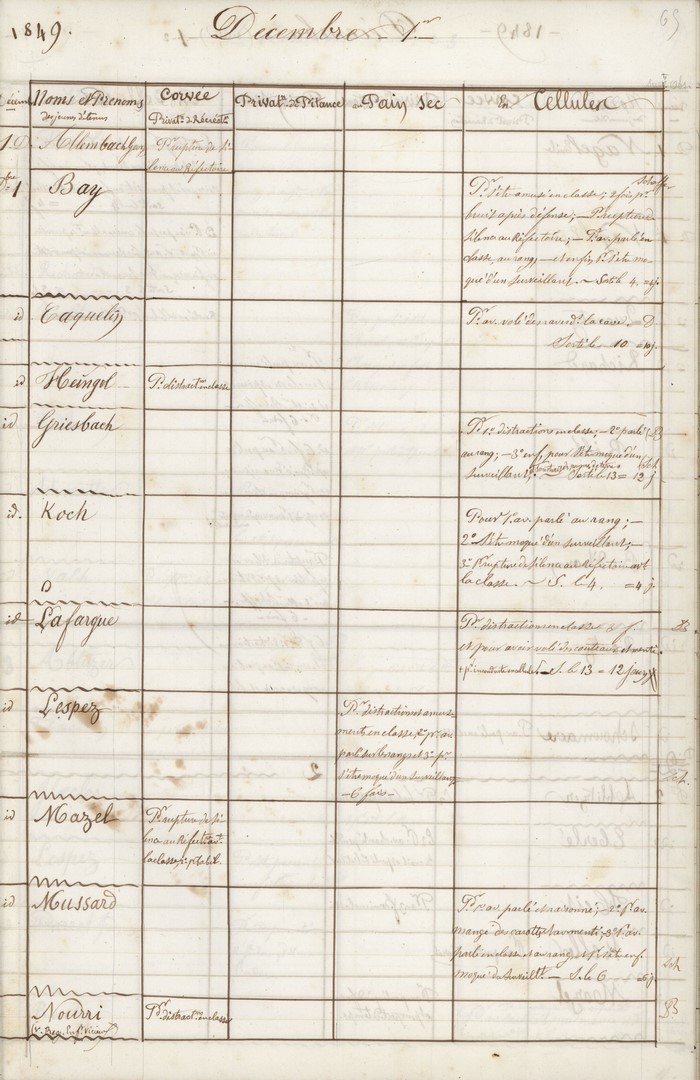 1849.
Décembre 1er
65
Noms et Prénoms
des jeunes détenus
Corvée
Privat. de Récréat.
Privat. de Pitance
au Pain Sec
en Cellule
1 D. Allembach
Pr rupture de si-
lence au Réfectoire
1 Bay
Pr s'être amusé en classe; 2 fois pr
huit après défense; — Pr rupture de
silence au Réfectoire; — Pr av. parlé en
classe, au rang; — et enfin Pr s'être mo-
qué d'un surveillant. — Sorti le 4. = 4 j.
id
Pr av. volé des raves ds la cave.
Sorti le 10 = 10 j.
id Heingel
Pr distract. en classe
id Griesbach
Pr 1° distractions en classe; — 2° parlé
au rang; — 3° enf. pour s'êt. moqué d'un
surveillant; Sorti le 13 = 13 j
id. Koch
Pour 1° av. parlé au rang; —
2° s'êt. moqué d'un surveillant;
3° Pr rupture de silence au Réfectoire avt
la classe. — S. le 4. = 4 j.
D
id Lafargue
Pr distractions en classe
et pour avoir volé des couteaux et menti
S. le 13 = 12 jours
id Lespez
Pr distractions et amuse-
ments en classe, 2° pr av.
parlé sur les rangs et 3° pr
s'être moqué d'un surveillant
— 6 fois —
id Mazel
Pr rupture de si-
lence au Réfect. avt
la classe
id Mussard
Pr 1° av. parlé et raisonné; — 2° Pr av.
mangé des carottes et av. menti; 3° Pr av.
parlé en classe et au rang et Pr s'êt. enf.
moqué du surveillt. — S. le 6 = 6 j.
Sch
Nourri
Pr distract. en classe
B